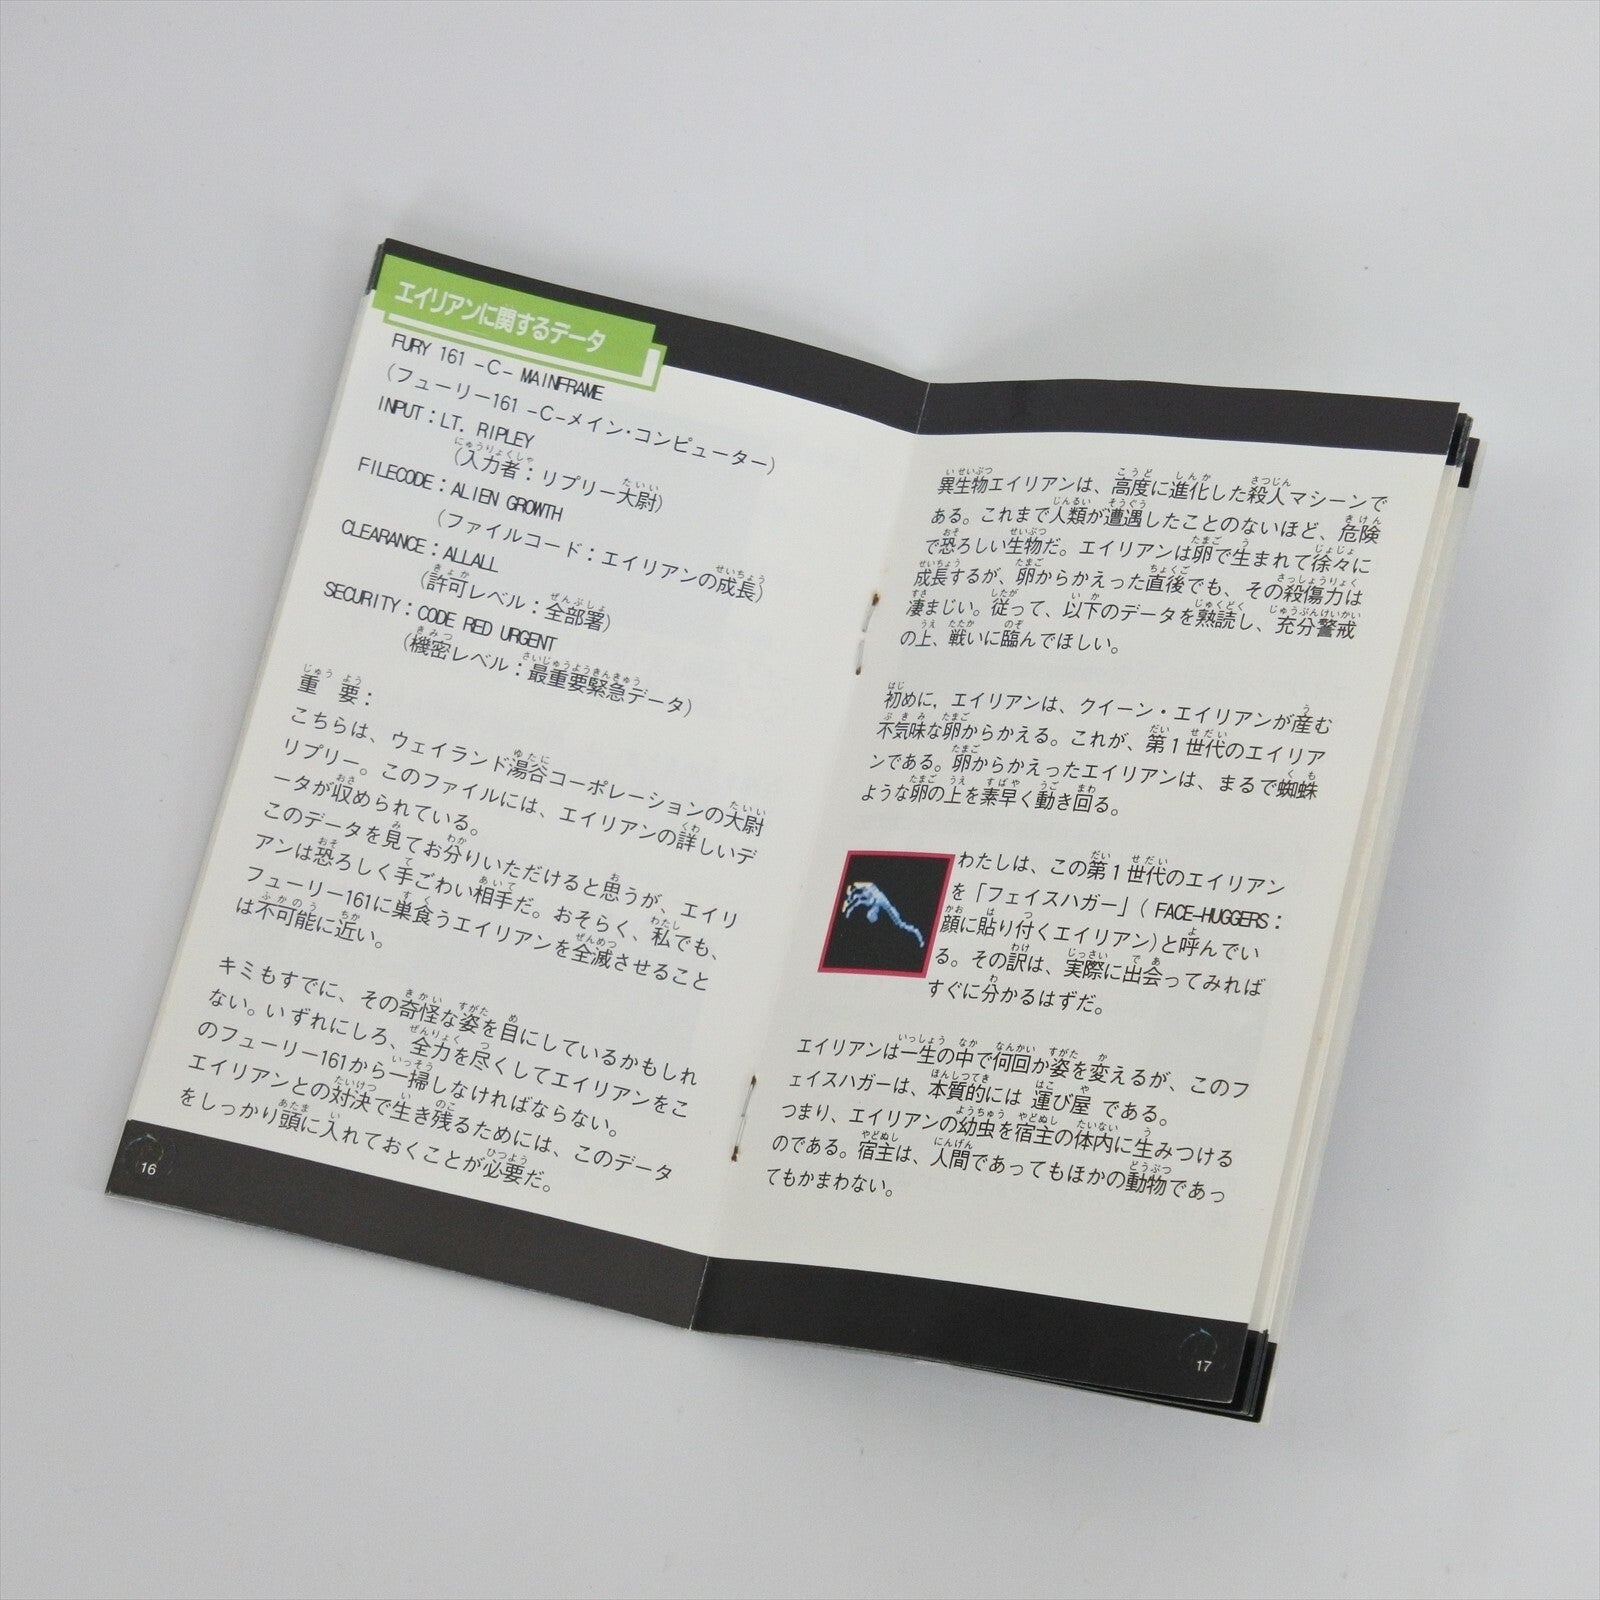 エイリアンに関するデータ
FURY 161 -C- MAINFRAME
(フューリー161 -C-メイン・コンピューター)
INPUT:LT. RIPLEY
(入力者:リプリー大尉)
FILECODE:ALIEN GROWTH
(ファイルコード:エイリアンの成長)
CLEARANCE:ALLALL
(許可レベル:全部署)
SECURITY:CODE RED URGENT
(機密レベル:最重要緊急データ)
重 要:
こちらは、ウェイランド湯谷コーポレーションの大尉
リプリー。このファイルには、エイリアンの詳しいデ
ータが収められている。
このデータを見てお分りいただけると思うが、エイリ
アンは恐ろしく手ごわい相手だ。おそらく、私でも、
フューリー161に巣食うエイリアンを全滅させること
は不可能に近い。
キミもすでに、その奇怪な姿を目にしているかもしれ
ない。いずれにしろ、全力を尽くしてエイリアンをこ
のフューリー161から一掃しなければならない。
エイリアンとの対決で生き残るためには、このデータ
をしっかり頭に入れておくことが必要だ。
16
異生物エイリアンは、高度に進化した殺人マシーンで
ある。これまで人類が遭遇したことのないほど、危険
で恐ろしい生物だ。エイリアンは卵で生まれて徐々に
成長するが、卵からかえった直後でも、その殺傷力は
凄まじい。従って、以下のデータを熟読し、充分警戒
の上、戦いに臨んでほしい。
初めに,エイリアンは、クイーン・エイリアンが産む
不気味な卵からかえる。これが、第1世代のエイリア
ンである。卵からかえったエイリアンは、まるで蜘蛛
ような卵の上を素早く動き回る。
わたしは、この第1世代のエイリアン
を「フェイスハガー」( FACE-HUGGERS:
顔に貼り付くエイリアン)と呼んでい
る。その訳は、実際に出会ってみれば
すぐに分かるはずだ。
エイリアンは一生の中で何回か姿を変えるが、このフ
ェイスハガーは、本質的には 運び屋 である。
つまり、エイリアンの幼虫を宿主の体内に生みつける
のである。宿主は、人間であってもほかの動物であっ
てもかまわない。
17